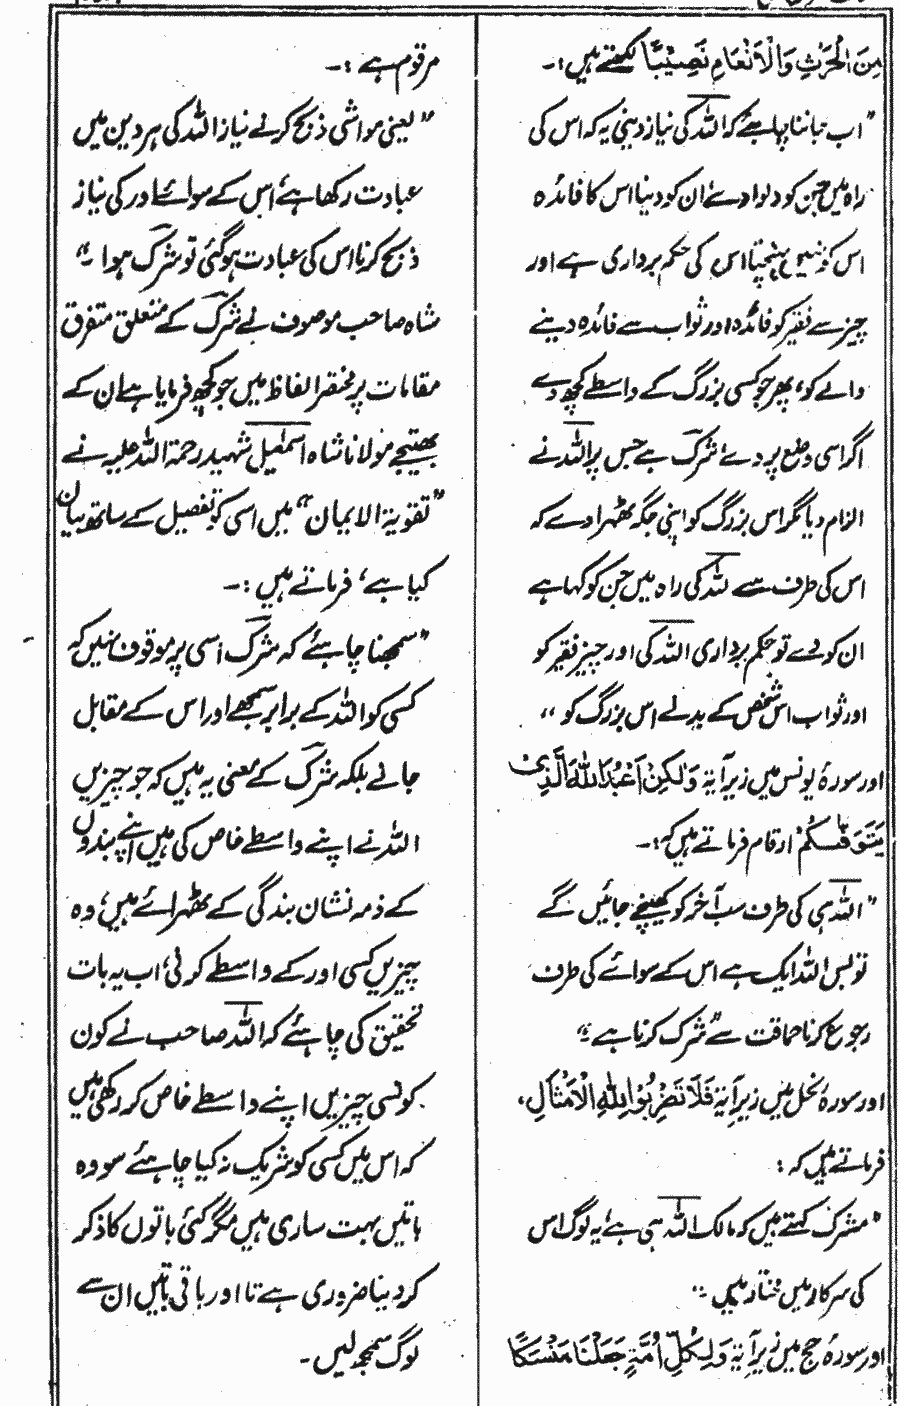 مِنَ الْحَرْثِ وَالْاَنْعَامِ نَصِيْبًا لکھتے ہیں :-
"اب جاننا چاہئے کہ اللہ کی نیاز دینی یہ کہ اس کی
راہ میں جن کو دلوا دے ان کو دینا اس کا فائدہ
اس کو نہیں پہنچتا اس کی حکم برداری ہے اور
چیز سے فقیر کو فائدہ اور ثواب سے فائدہ دینے
والے کو، پھر جو کسی بزرگ کے واسطے کچھ دے
اگر اسی وضع پر دے شرک ہے جس پر اللہ نے
الزام دیا مگر اس بزرگ کو اپنی جگہ ٹھہرا دے کہ
اس کی طرف سے للہ کی راہ میں جن کو کہا ہے
ان کو دے تو حکم برداری اللہ کی اور چیز فقیر کو
اور ثواب اس شخص کے بدلے اس بزرگ کو "
اور سورۂ یونس میں زیر آیۃ وَلٰكِنْ اَعْبُدُ اللّٰهَ الَّذِیْ
يَتَوَفّٰىكُمْ ارقام فرماتے ہیں کہ :-
"اللہ ہی کی طرف سب آخر کو کھینچے جائیں گے
تو بس اللہ ایک ہے اس کے سوائے کی طرف
رجوع کرنا حماقت سے شرک کرنا ہے "
اور سورۂ نحل میں زیر آیۃ فَلَا تَضْرِبُوْا لِلّٰهِ الْاَمْثَالَ،
فرماتے ہیں کہ :
"مشرک کہتے ہیں کہ مالک اللہ ہی ہے یہ لوگ اس
کی سرکار میں مختار ہیں "
اور سورۂ حج میں زیر آیۃ وَلِكُلِّ اُمَّةٍ جَعَلْنَا مَنْسَكًا
مرقوم ہے :-
"یعنی مواشی ذبح کرنے نیاز اللہ کی ہر دین میں
عبادت رکھا ہے، اس کے سوائے اور کی نیاز
ذبح کرنا اس کی عبادت ہو گئی تو شرک ہوا "
شاہ صاحب موصوف نے شرک کے متعلق متفرق
مقامات پر مختصر الفاظ میں جو کچھ فرمایا ہے ان کے
بھتیجے مولانا شاہ اسمٰعیل شہید رحمۃ اللہ علیہ نے
"تقویۃ الایمان" میں اسی کو تفصیل کے ساتھ بیان
کیا ہے، فرماتے ہیں :-
"سمجھنا چاہئے کہ شرک اسی پر موقوف نہیں کہ
کسی کو اللہ کے برابر سمجھے اور اس کے مقابل
جانے بلکہ شرک کے معنی یہ ہیں کہ جو چیزیں
اللہ نے اپنے واسطے خاص کی ہیں اپنے بندوں
کے ذمہ نشان بندگی کے ٹھہرائے ہیں، وہ
چیزیں کسی اور کے واسطے کرنی، اب یہ بات
تحقیق کی چاہئے کہ اللہ صاحب نے کون
کونسی چیزیں اپنے واسطے خاص کر رکھی ہیں
کہ اس میں کسی کو شریک نہ کیا چاہئے سو وہ
باتیں بہت ساری ہیں مگر کئی باتوں کا ذکر
کر دینا ضروری ہے تا اور باقی باتیں ان سے
لوگ سمجھ لیں -